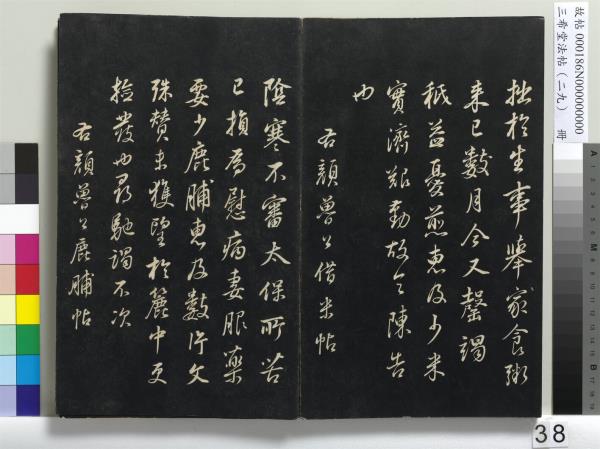 拙於生事舉家食粥
來已數月今又罄竭
秖益憂煎惠及少米
實濟艱勤故令陳告
也
右顏魯公借米帖
陰寒不審太保所苦
已損為慰病妻服藥
要少鹿脯惠及數片父
殊贊未獲望於麗中更
撿發也尋馳謁不次
右顏魯公鹿脯帖
故帖 000186N000000000
三希堂法帖（二九） 冊
38